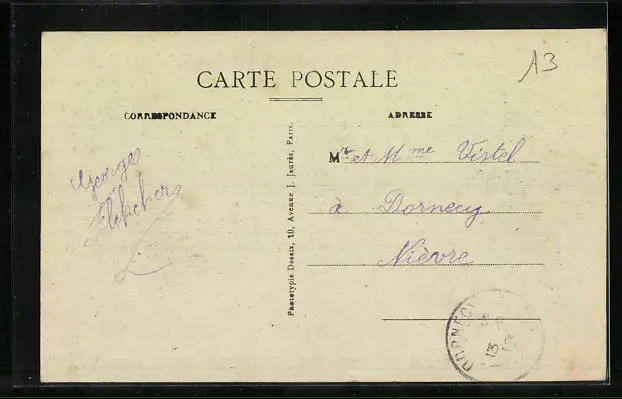 A3
CARTE POSTALE
CORRESPONDANCE
ADRESSE
Georges
Mr et Mme Vistel
à Dornecy
Nièvre
Phototypie Desaix, 10, Avenue J. Jaurès, Paris.
DORNECY
13